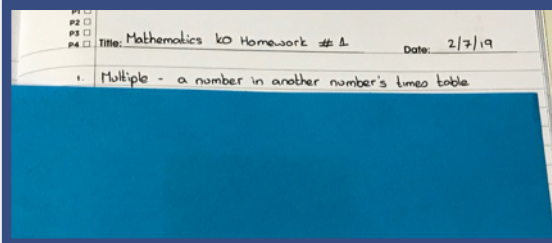 P2 □
P3 □
P4 □ Title: Mathematics KO Homework # 1 Date: 2/7/19
1. Multiple - a number in another number's times table